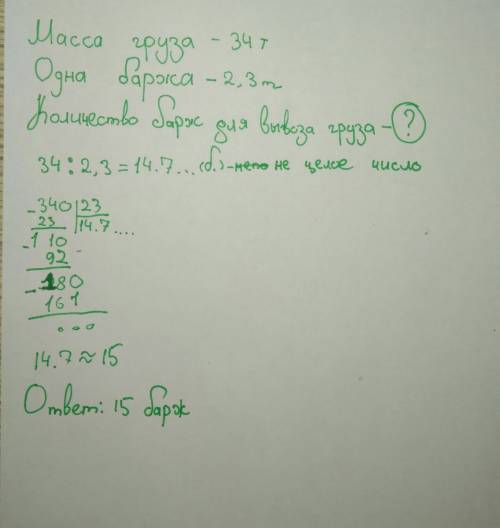 Масса груза - 34 т
Одна баржа - 2,3 т
Количество барж для вывоза груза - ?
34 : 2,3 = 14.7... (б.) - не целое число
- 340 | 23
23 | 14.7....
- 110
92
- 180
161
...
14.7 ≈ 15
Ответ: 15 барж